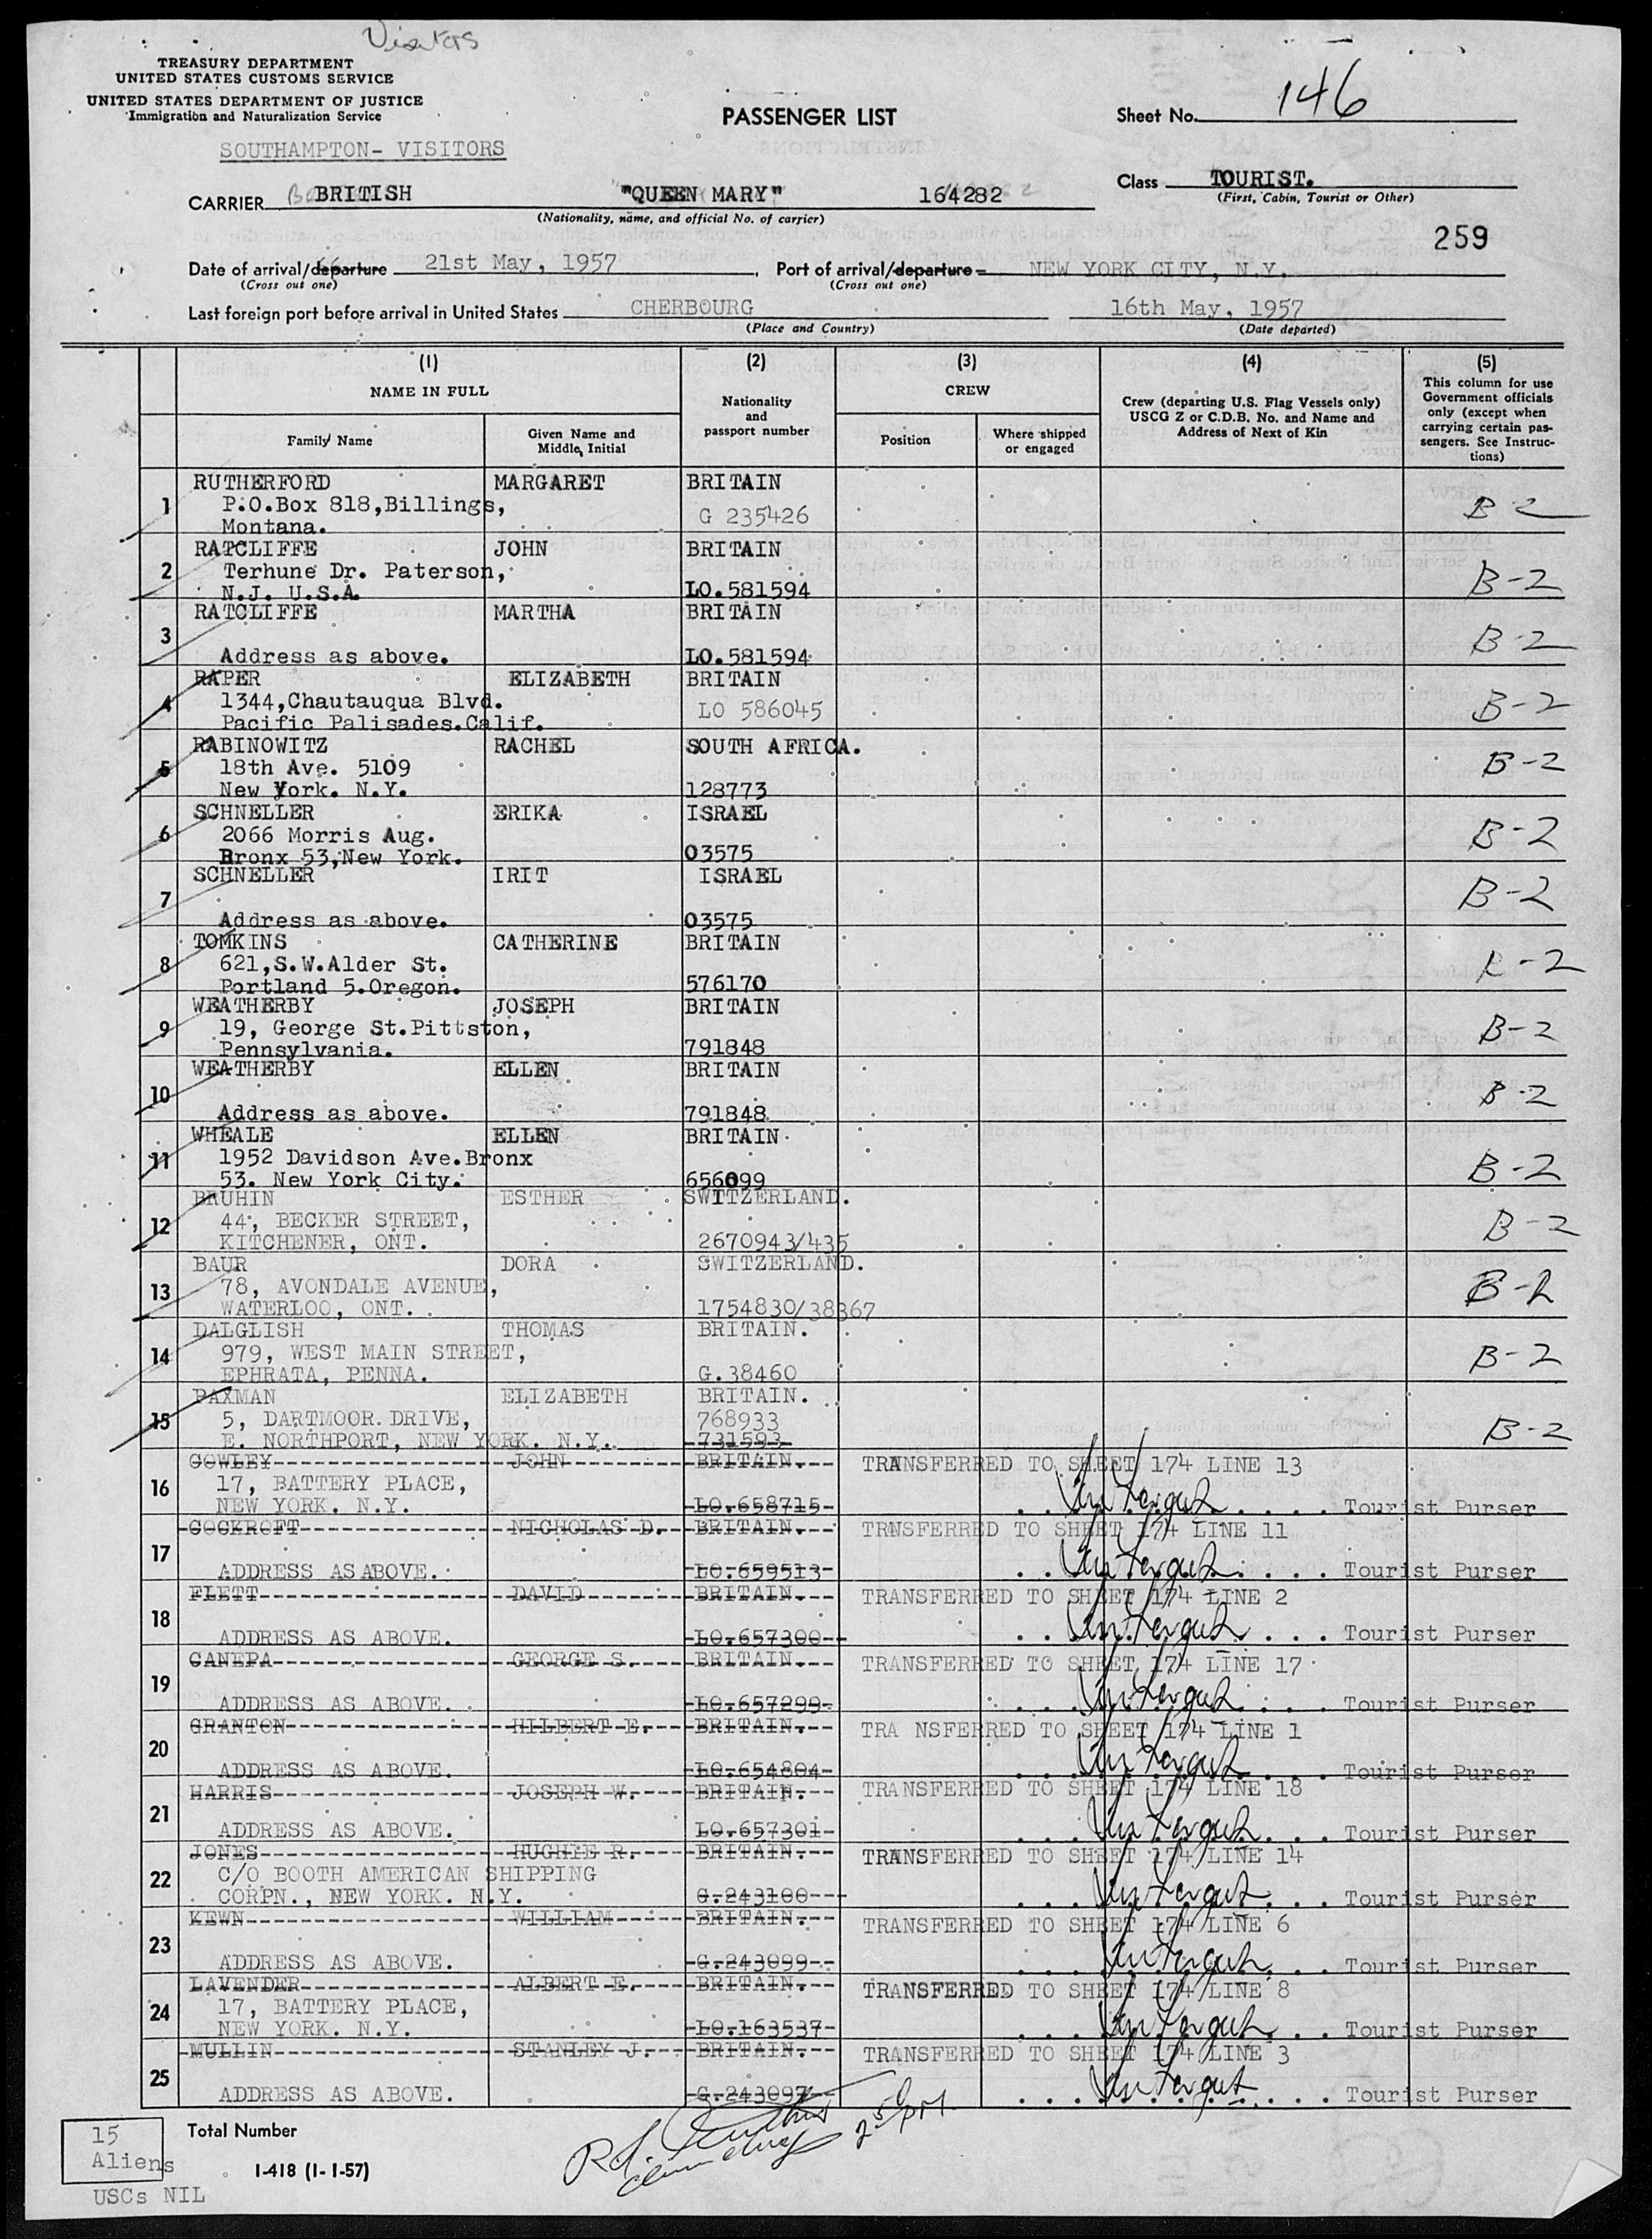 Visitors
TREASURY DEPARTMENT
UNITED STATES CUSTOMS SERVICE
UNITED STATES DEPARTMENT OF JUSTICE
Immigration and Naturalization Service
PASSENGER LIST
Sheet No. 146
SOUTHAMPTON- VISITORS
CARRIER BRITISH "QUEEN MARY" 164282
(Nationality, name, and official No. of carrier)
Class TOURIST.
(First, Cabin, Tourist or Other)
259
Date of arrival/departure 21st May, 1957. Port of arrival/departure NEW YORK CITY, N.Y.
(Cross out one) (Cross out one)
Last foreign port before arrival in United States CHERBOURG 16th May, 1957
(Place and Country) (Date departed)
(1) (2) (3) (4) (5)
NAME IN FULL
Family Name
Given Name and Middle Initial
Nationality and passport number
CREW
Position
Where shipped or engaged
Crew (departing U.S. Flag Vessels only)
USCG Z or C.D.B. No. and Name and
Address of Next of Kin
This column for use
Government officials
only (except when
carrying certain pas-
sengers. See Instruc-
tions)
1 RUTHERFORD MARGARET BRITAIN
P.O.Box 818,Billings, G 235426 B-2
Montana.
2 RATCLIFFE JOHN BRITAIN
Terhune Dr. Paterson, B-2
N.J. U.S.A. LO.581594
3 RATCLIFFE MARTHA BRITAIN
B-2
Address as above. LO.581594
4 RAPER ELIZABETH BRITAIN
1344,Chautauqua Blvd. LO 586045 B-2
Pacific Palisades.Calif.
5 RABINOWITZ RACHEL SOUTH AFRICA.
18th Ave. 5109 B-2
New York. N.Y. 128773
6 SCHNELLER ERIKA ISRAEL
2066 Morris Aug. B-2
Bronx 53,New York. 03575
7 SCHNELLER IRIT ISRAEL
B-2
Address as above. 03575
8 TOMKINS CATHERINE BRITAIN
621,S.W.Alder St. -2
Portland 5.Oregon. 576170
9 WEATHERBY JOSEPH BRITAIN
19, George St.Pittston, B-2
Pennsylvania. 791848
10 WEATHERBY ELLEN BRITAIN
B-2
Address as above. 791848
11 WHEALE ELLEN BRITAIN
1952 Davidson Ave.Bronx B-2
53. New York City. 656099
12 BRUHIN ESTHER SWITZERLAND.
44, BECKER STREET, B-2
KITCHENER, ONT. 2670943/435
13 BAUR DORA SWITZERLAND.
78, AVONDALE AVENUE, B-2
WATERLOO, ONT. 1754830/38367
14 DALGLISH THOMAS BRITAIN.
979, WEST MAIN STREET, B-2
EPHRATA, PENNA. G.38460
15 PAXMAN ELIZABETH BRITAIN.
5, DARTMOOR DRIVE, 768933 B-2
E. NORTHPORT, NEW YORK. N.Y. 731593
16 COWLEY JOHN BRITAIN. TRANSFERRED TO SHEET 174 LINE 13
17, BATTERY PLACE,
NEW YORK. N.Y. LO.658715 Tourist Purser
17 COCKROFT NICHOLAS D. BRITAIN. TRNSFERRED TO SHEET 174 LINE 11
ADDRESS AS ABOVE. LO.659513 Tourist Purser
18 FLETT DAVID BRITAIN. TRANSFERRED TO SHEET 174 LINE 2
ADDRESS AS ABOVE. LO.657300 Tourist Purser
19 CANEPA GEORGE S. BRITAIN. TRANSFERRED TO SHEET 174 LINE 17
ADDRESS AS ABOVE. LO.657299 Tourist Purser
20 GRANTON HILBERT E. BRITAIN. TRA NSFERRED TO SHEET 174 LINE 1
ADDRESS AS ABOVE. LO.654804 Tourist Purser
21 HARRIS JOSEPH W. BRITAIN. TRANSFERRED TO SHEET 174 LINE 18
ADDRESS AS ABOVE. LO.657301 Tourist Purser
22 JONES HUGHIE R. BRITAIN. TRANSFERRED TO SHEET 174 LINE 14
C/O BOOTH AMERICAN SHIPPING
CORPN., NEW YORK. N.Y. G.243100 Tourist Purser
23 KEWN WILLIAM BRITAIN. TRANSFERRED TO SHEET 174 LINE 6
ADDRESS AS ABOVE. G.243099 Tourist Purser
24 LAVENDER ALBERT E. BRITAIN. TRANSFERRED TO SHEET 174 LINE 8
17, BATTERY PLACE,
NEW YORK. N.Y. LO.163537 Tourist Purser
25 MULLIN STANLEY J. BRITAIN. TRANSFERRED TO SHEET 174 LINE 3
ADDRESS AS ABOVE. G.243097 Tourist Purser
15 Total Number
Aliens
I-418 (1-1-57)
USCs NIL